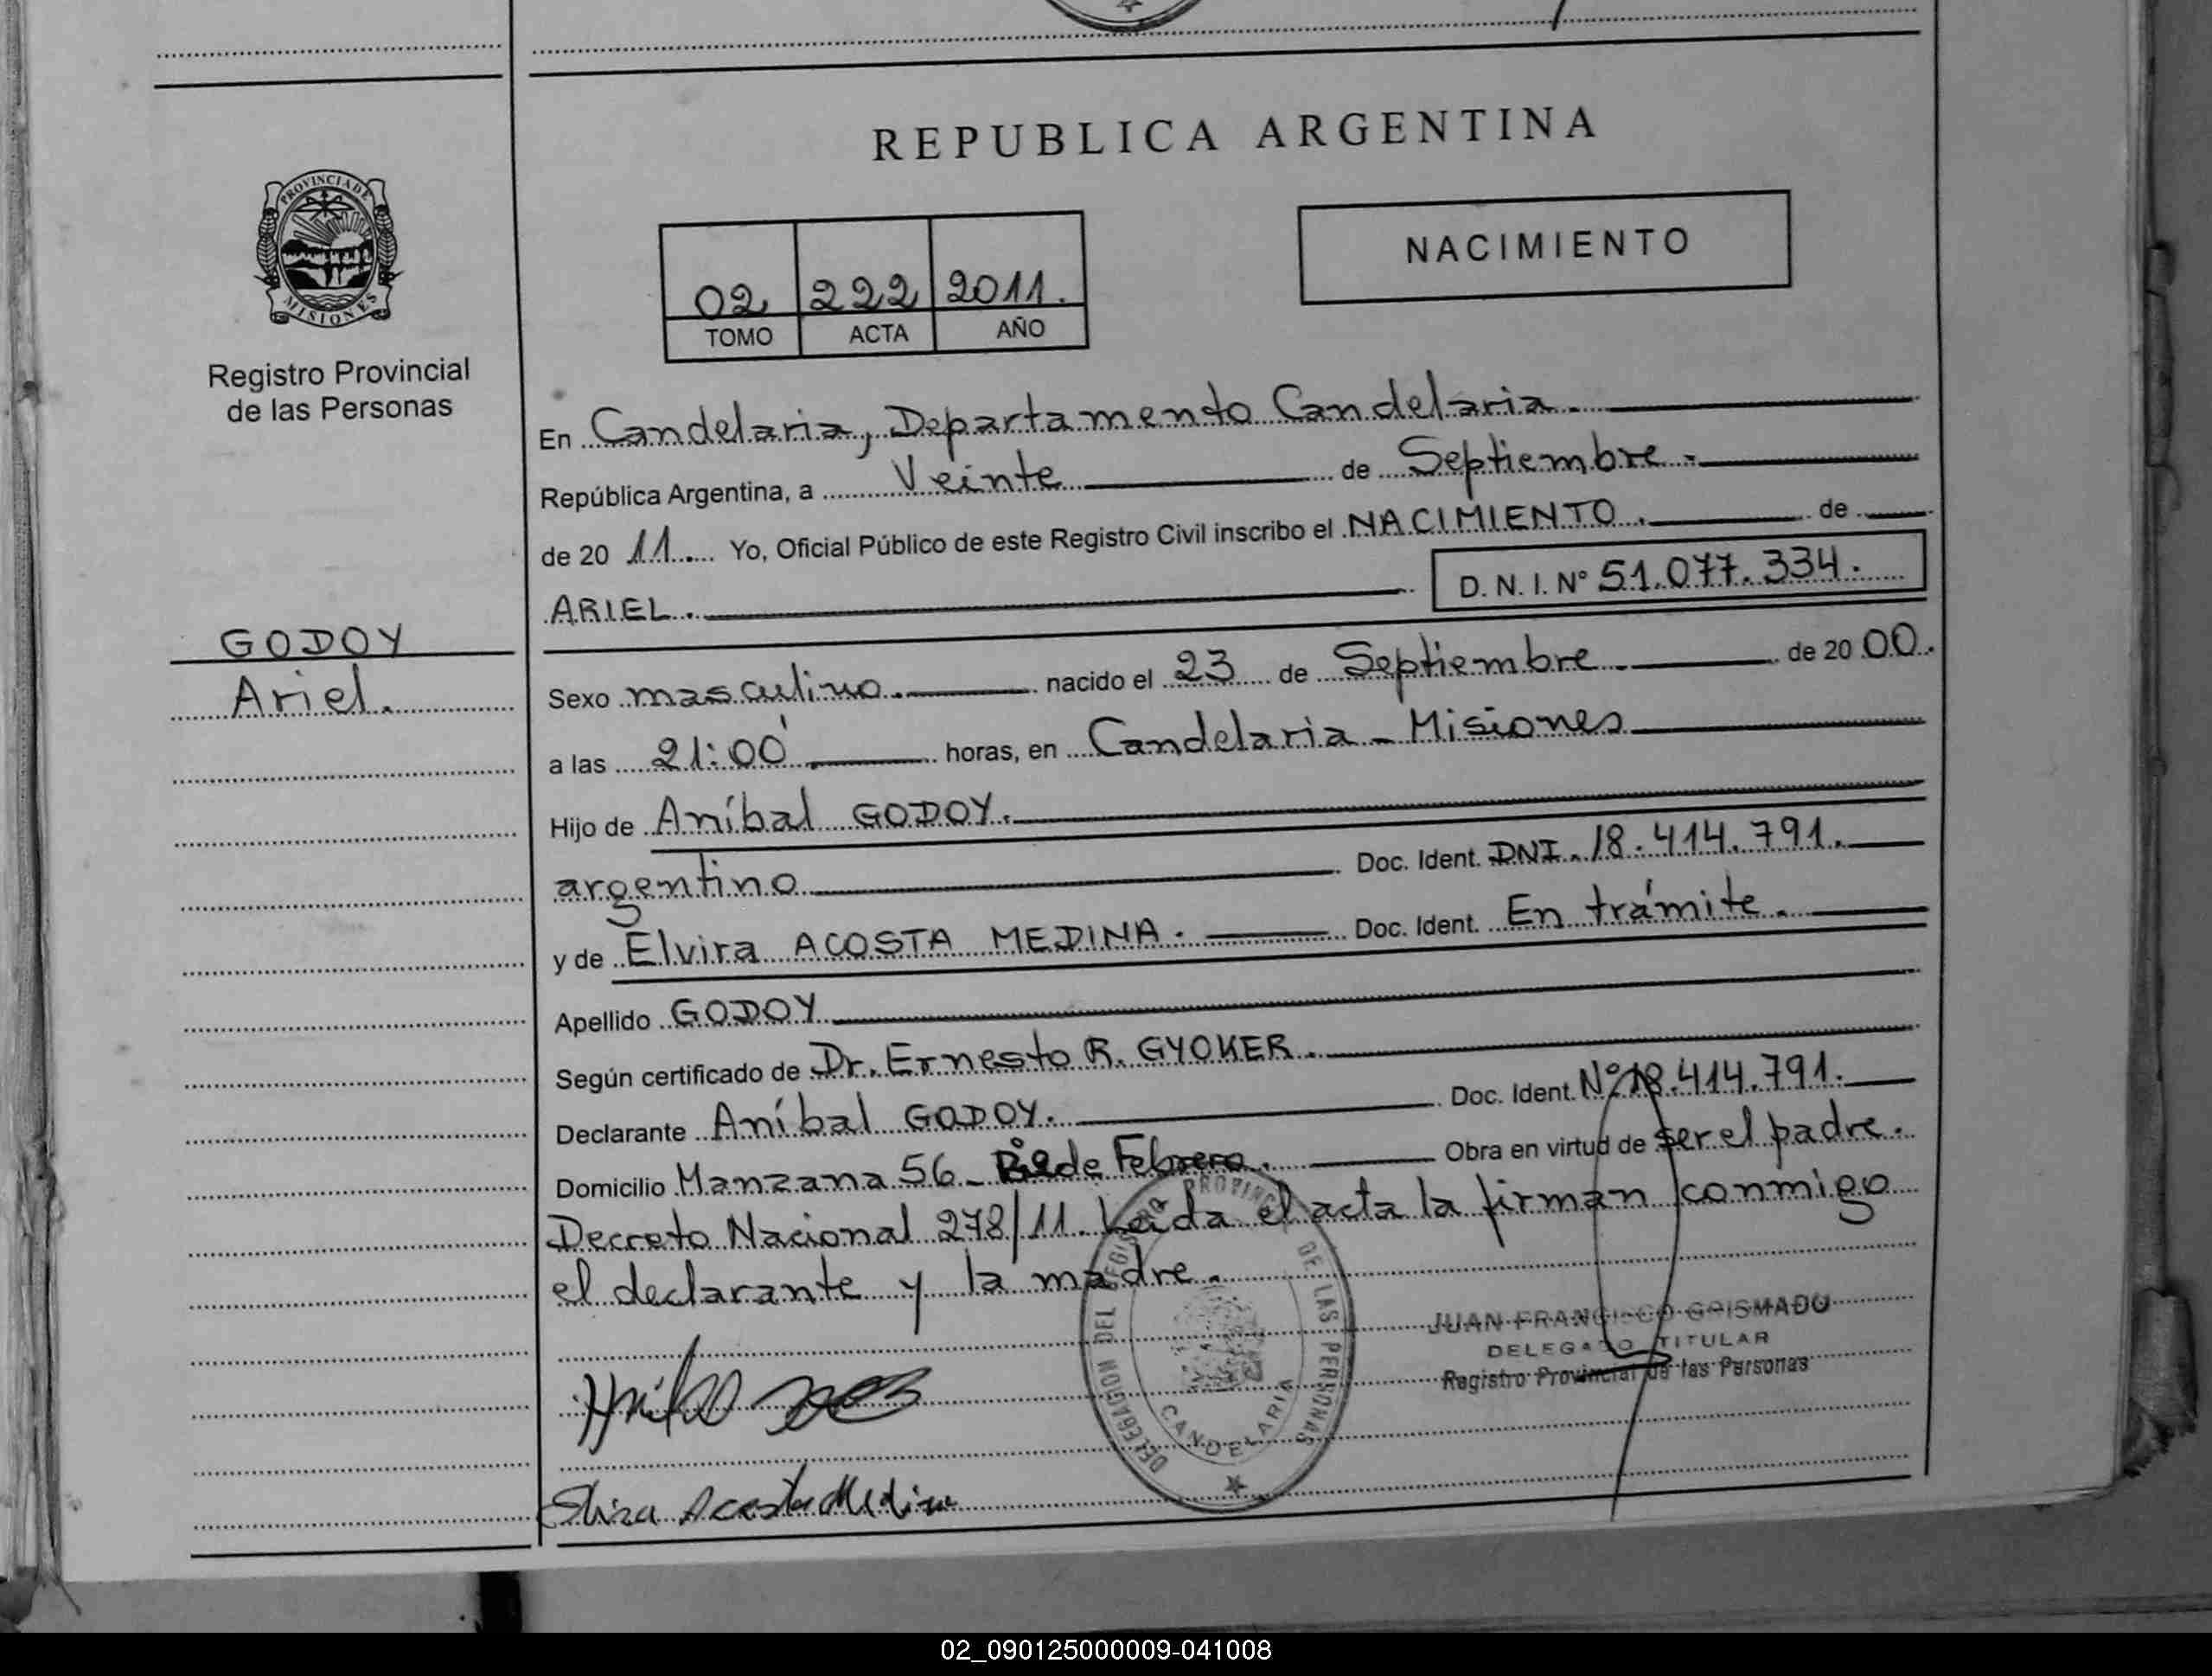 REPUBLICA ARGENTINA
PROVINCIA DE
MISIONES
Registro Provincial
de las Personas
NACIMIENTO
02 222 2011.
TOMO ACTA AÑO
En Candelaria, Departamento Candelaria.
República Argentina, a Veinte de Septiembre.
de 20 11. Yo, Oficial Público de este Registro Civil inscribo el NACIMIENTO. de
ARIEL. D. N. I. Nº 51.077.334.
GODOY
Ariel.
Sexo masculino. nacido el 23 de Septiembre. de 20 00.
a las 21:00 horas, en Candelaria - Misiones
Hijo de Aníbal GODOY.
argentino Doc. Ident. DNI. 18.414.791.
y de Elvira ACOSTA MEDINA. Doc. Ident. En trámite.
Apellido GODOY
Según certificado de Dr. Ernesto R. GYOKER.
Declarante Aníbal GODOY. Doc. Ident. Nº 18.414.791.
Domicilio Manzana 56 - de Febrero. Obra en virtud de ser el padre.
Decreto Nacional 278/11. Leida el acta la firman conmigo
el declarante y la madre.
DELEGACION DEL REGISTRO PROVINCIAL DE LAS PERSONAS
CANDELARIA
JUAN FRANCISCO GRISMADO
DELEGADO TITULAR
Registro Provincial de las Personas
Acosta Medina
02_090125000009-041008